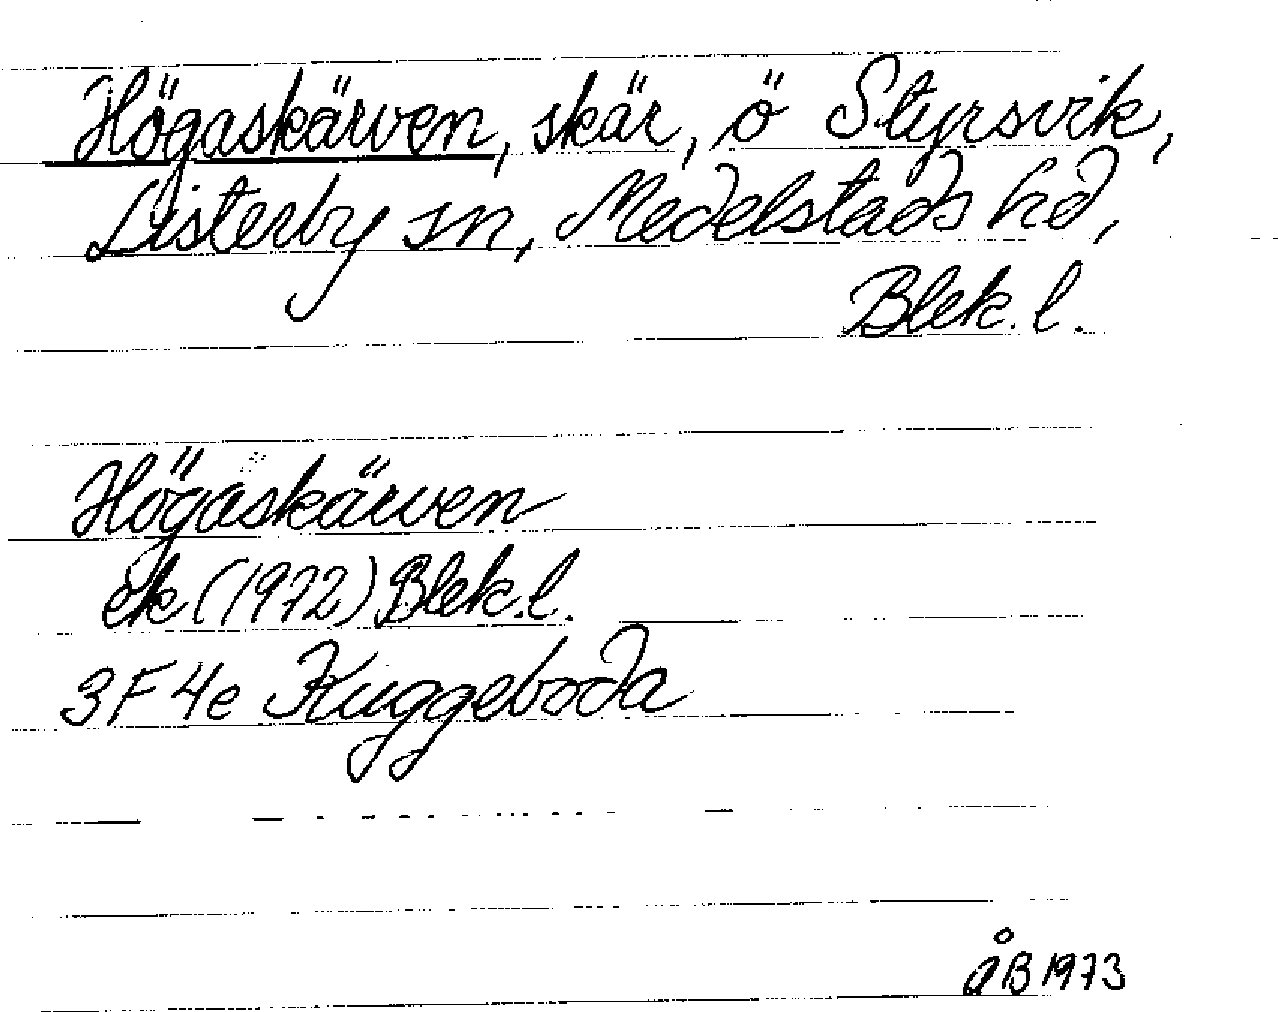 Högaskärven, skär, ö Styrsvik,
Listerby sn, Medelstads hd,
Blek. l.
Högaskärven
ek (1972) Blek. l.
3F 4e Kuggeboda
ÅB 1973